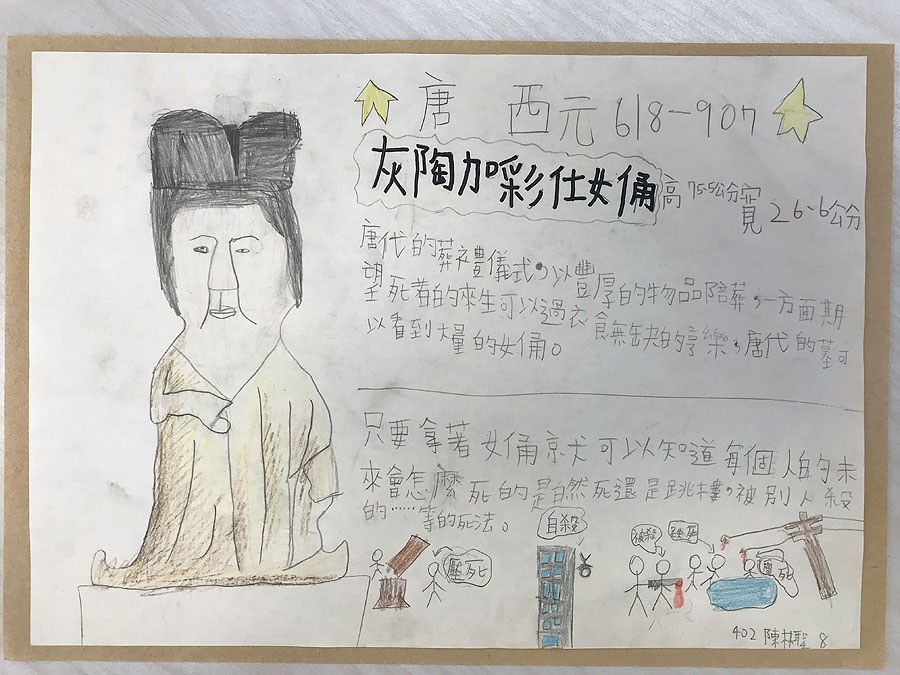 唐 西元 618-907
灰陶加彩仕女俑
高 75.5公分 寬 26.6公分
唐代的葬禮儀式,以豐厚的物品陪葬,一方面期
望死者的來生可以過衣食無缺的亨樂,唐代的墓可
以看到大量的女俑。
只要拿著女俑就可以知道每個人的未
來會怎麼死的是自然死還是跳樓,被別人殺
的……等的死法。
自殺
被殺
壓死
402 陳
8